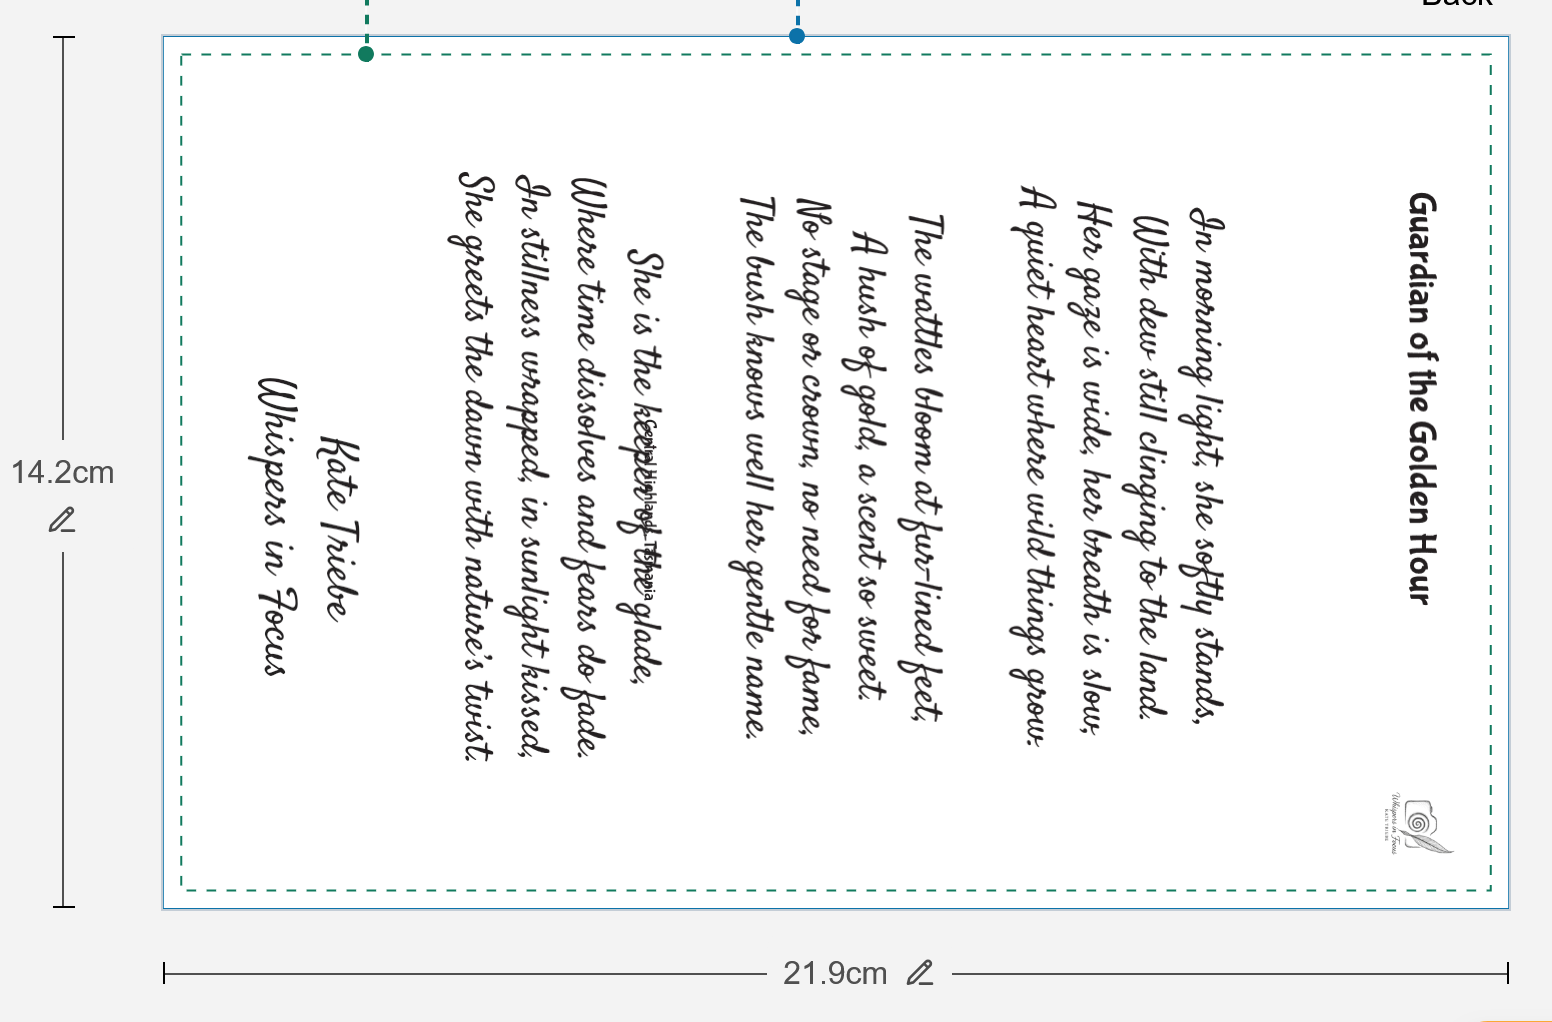 Back
Guardian of the Golden Hour
In morning light, she softly stands,
With dew still clinging to the land.
Her gaze is wide, her breath is slow,
A quiet heart where wild things grow.
The wattles bloom at fur-lined feet,
A hush of gold, a scent so sweet.
No stage or crown, no need for fame,
The bush knows well her gentle name.
She is the keeper of the glade,
Central Highlands Tasmania
Where time dissolves and fears do fade.
In stillness wrapped, in sunlight kissed,
She greets the dawn with nature's twist.
Kate Triebe
Whispers in Focus
Whispers in Focus
KATE TRIEBE
14.2cm
21.9cm